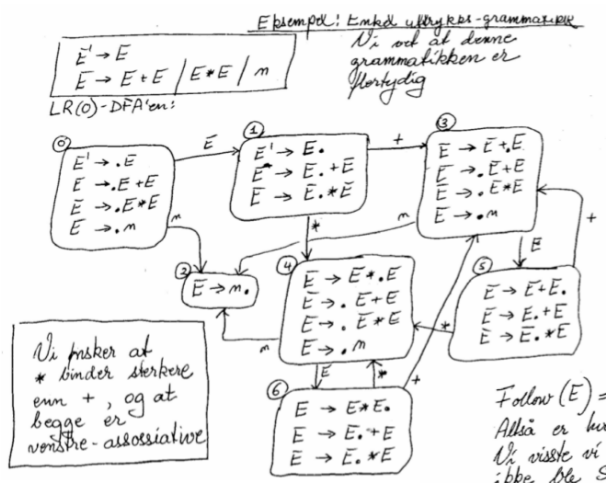 Eksempel: Enkel uttrykks-grammatikk
E' → E
E → E + E / E * E / n
Vi vet at denne
grammatikken er
flertydig
LR(0)-DFA'en:
0
E' → .E
E → .E+E
E → .E*E
E → .n
E
n
1
E' → E.
E → E.+E
E → E.*E
+
*
3
E → E+.E
E → .E+E
E → .E*E
E → .n
n
E
+
2
E → n.
4
E → E*.E
E → .E+E
E → .E*E
E → .n
n
E
*
+
5
E → E+E.
E → E.+E
E → E.*E
*
6
E → E*E.
E → E.+E
E → E.*E
Vi ønsker at
* binder sterkere
enn +, og at
begge er
venstre-assossiative
Follow(E) =
Altså er
Vi visste vi
ikke ble S